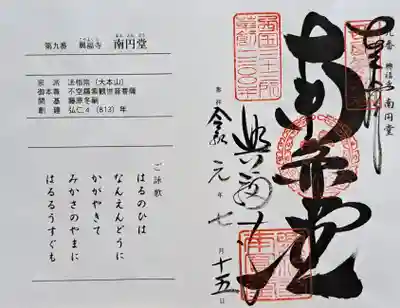 第九番 興福寺 南円堂
なんえんどう
宗派 法相宗(大本山)
御本尊 不空羂索観世音菩薩
開基 藤原冬嗣
創建 弘仁4(813)年
ご詠歌
はるのひは
なんえんどうに
かがやきて
みかさのやまに
はるるうすぐも
九番 興福寺 南円堂
奉拝
南円堂
興福寺
令和元年七月十五日